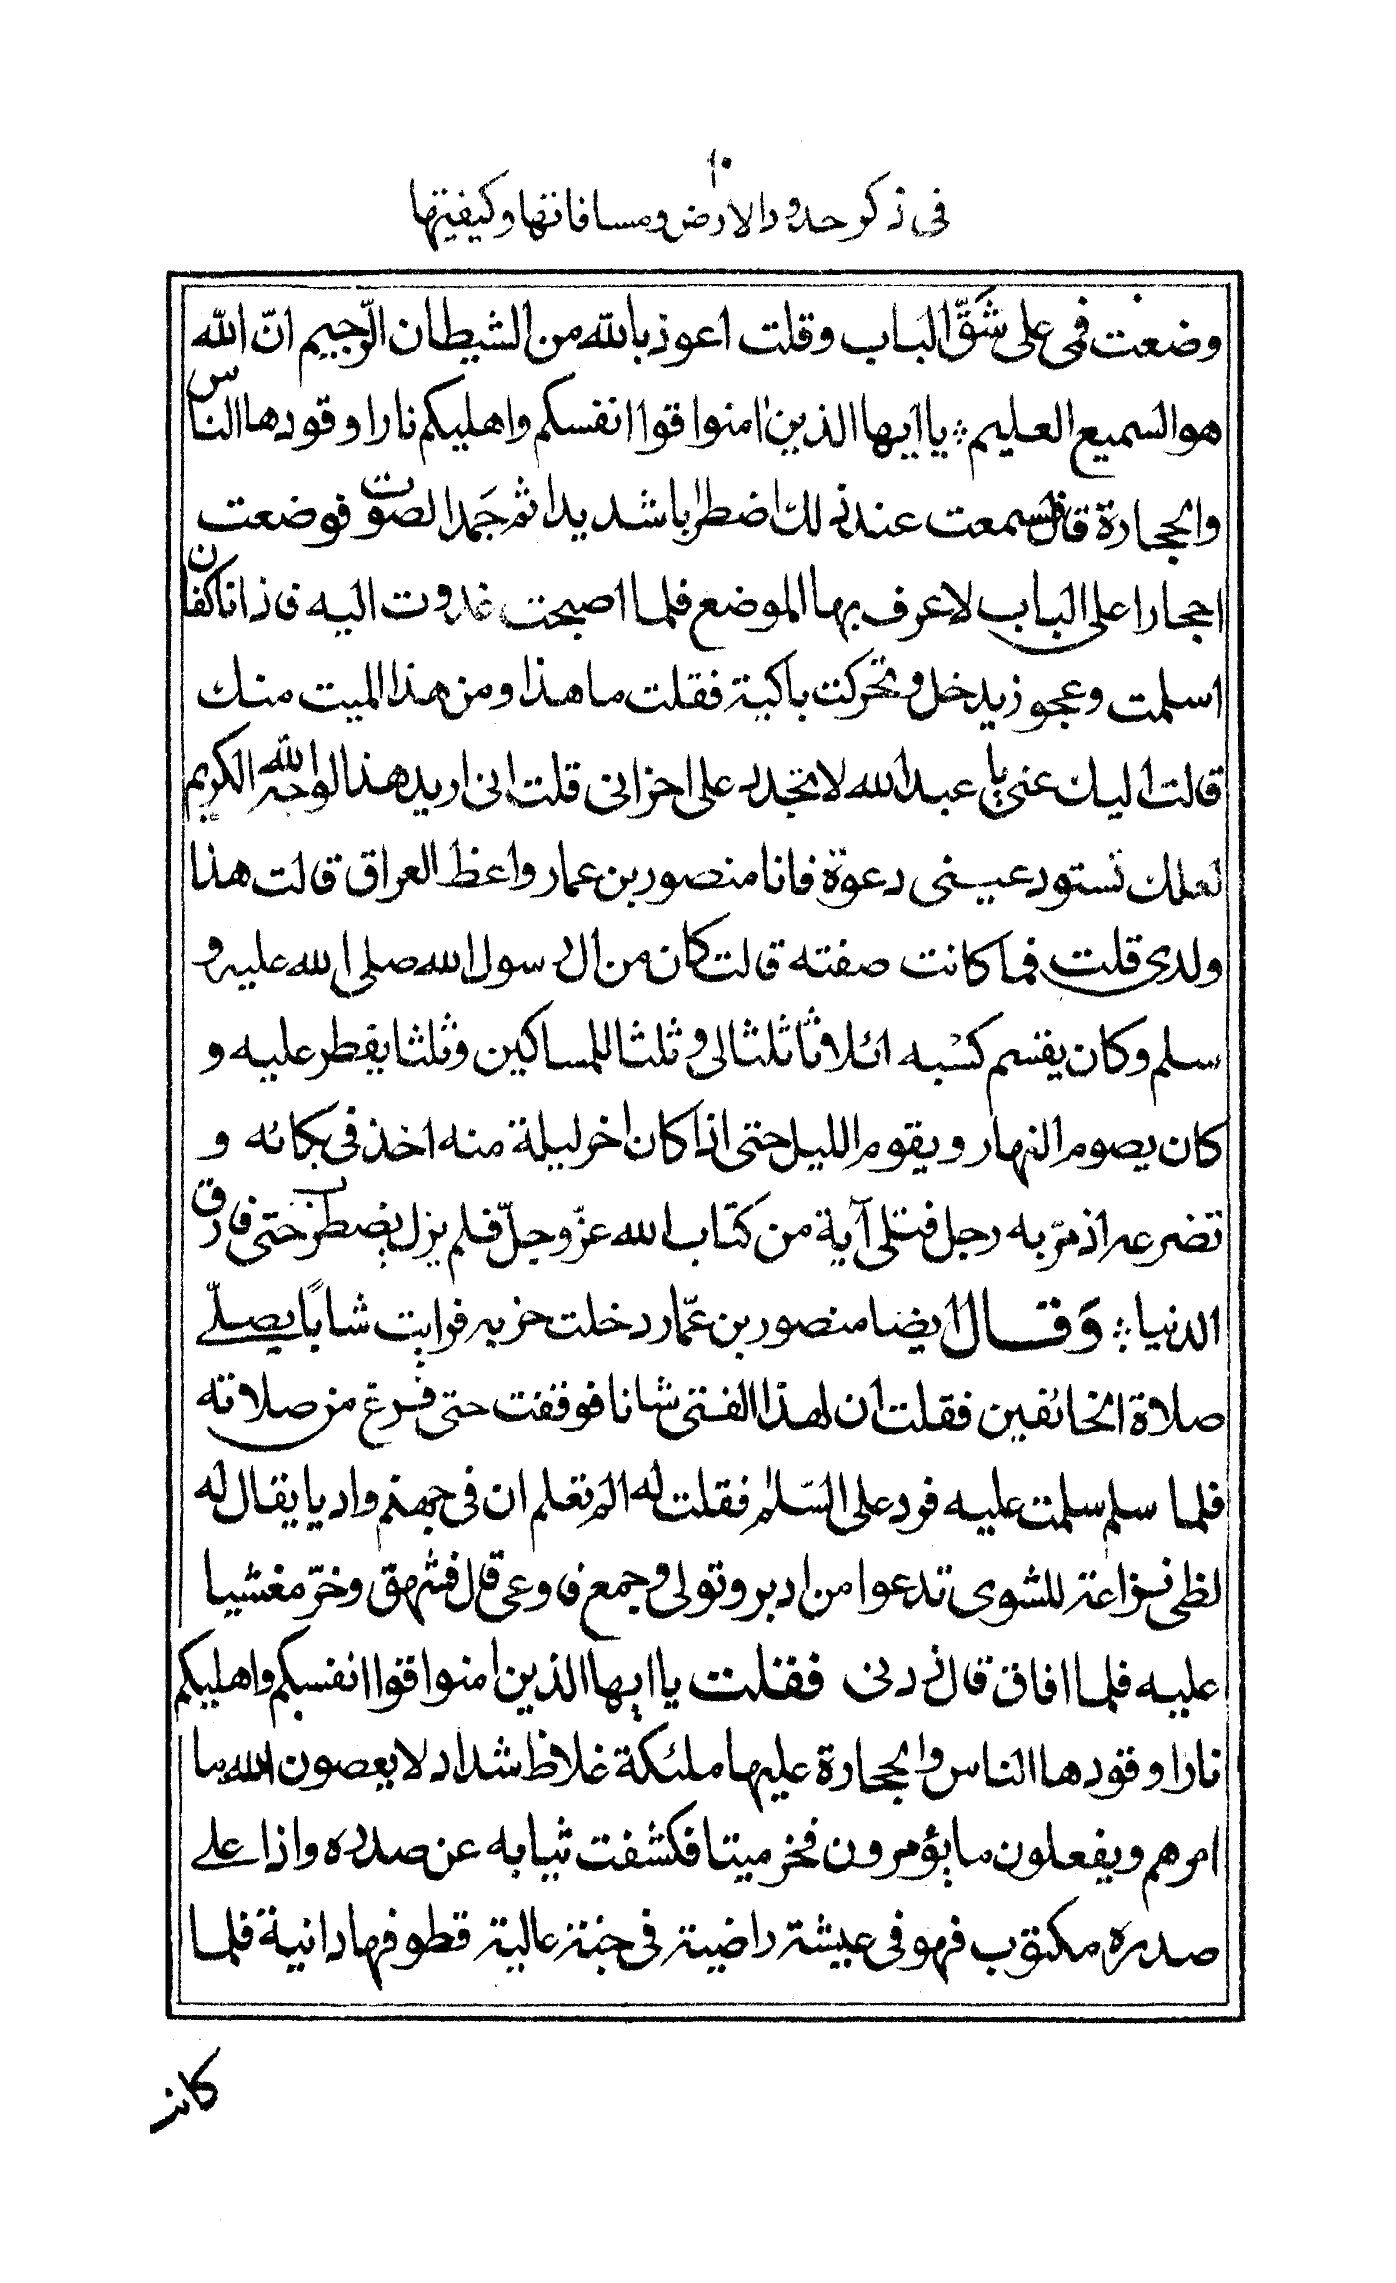 ١٠
فى ذكر حدود الارض ومسافاتها وكيفيتها
وضعت فمى على شَقّ الباب وقلت اعوذ بالله من الشيطان الرّجيم انّ الله
هو السميع العليم ؞ يا ايها الذين امنوا قوا انفسكم واهليكم نارا وقودها الناس
والحجارة قال فسمعت عند ذلك اضطرابا شديدا ثم جَمد الصوت فوضعت
احجارا على الباب لاعرف بها الموضع فلما اصبحت غدوت اليه فاذا انا كفان
اسلمت وعجوز يدخل وتحركت باكية فقلت ما هذا ومن هذا الميت منك
قالت اليك عنى يا عبد الله لا تجدد على احزانى قلت انى اريد هذا لوجه الله الكريم
لعلك تستودعينى دعوة فانا منصور بن عمار واعظ العراق قالت هذا
ولدى قلت فما كانت صفته قالت كان من ال رسول الله صلى الله عليه و
سلم وكان يقسم كسبه اثلاثا ثلثا لى وثلثا للمساكين وثلثا يفطر عليه و
كان يصوم النهار ويقوم الليل حتى اذا كان اخر ليلة منه اخذ فى بكائه و
تضرعه اذ مرّ به رجل فتلى آية من كتاب الله عزّ وجلّ فلم يزل يضطرب حتى فارق
الدنيا ؞ وَقال ايضا منصور بن عمّار دخلت خربه فرايت شابًا يصلّے
صلاة الخائفين فقلت ان لهذا الفتى شانا فوقفت حتى فرغ من صلاته
فلما سلم سلمت عليه فرد على السّلام فقلت له الم تعلم ان فى جهنم واديا يقال له
لظى نزاعة للشوى تدعوا من ادبر وتولى وجمع فاوعى قال فشهق وخرّ مغشيا
عليه فلما افاق قال زدنى فقلت يا ايها الذين امنوا قوا انفسكم واهليكم
نارا وقودها الناس والحجارة عليها ملئكة غلاظ شداد لا يعصون الله ما
امرهم ويفعلون ما يؤمرون فخر ميتا فكشفت ثيابه عن صدره واذا على
صدره مكتوب فهو فى عيشة راضية فى جنة عالية قطوفها دانية فلما
كانت